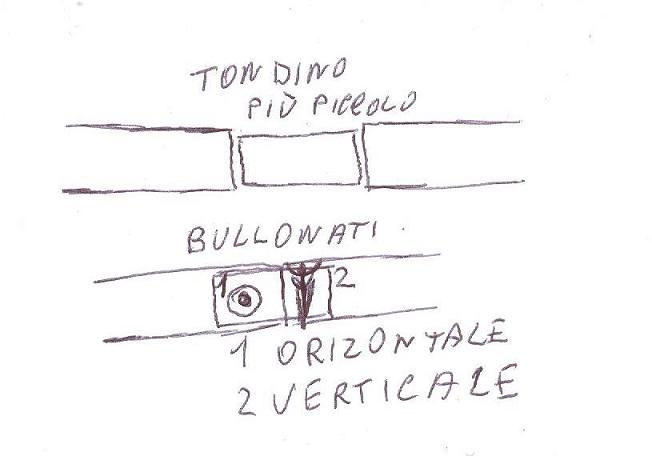 TONDINO
PIÙ PICCOLO
BULLONATI
1
2
1 ORIZONTALE
2 VERTICALE